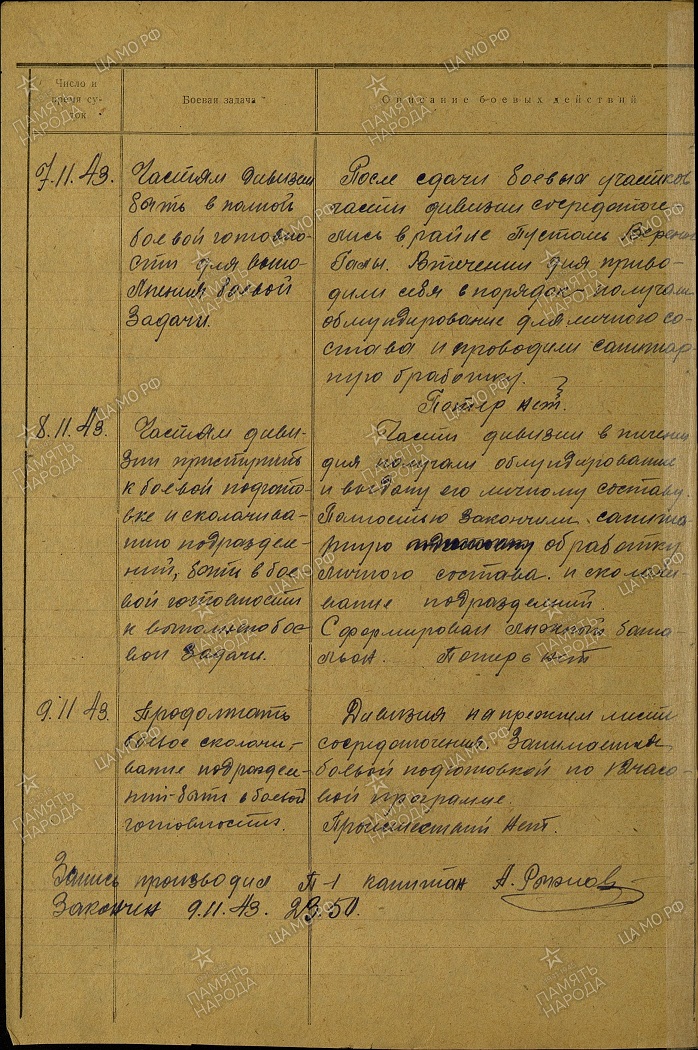 Число и
время су-
ток
Боевая задача
Описание боевых действий
7.11.43.
Частям дивизии
быть в полной
боевой готовно-
сти для выпо
лнения боевой
задачи.
После сдачи боевых участков
части дивизии сосредоточи-
лись в районе Пустошь
В течении дня приво-
дили себя в порядок - получали
обмундирование для личного со-
става и проводили санитар
ную бработку.
Потерь нет.
8.11.43.
Частям диви-
зии приступить
к боевой подгото-
вке и сколачива-
нию подразделе-
ний, быть в бое
вой готовности
к выполн бое
вой задачи.
Части дивизии в течении
дня получали обмундирование
и выдачу его личному составу.
Полностью закончили санита
рную обработку
личного состава и сколачи-
вание подразделний.
Сформирован лыжный бата-
льон. Потерь нет
9.11.43.
Продолжать
боевое сколачи-
вание подразделе-
ний - быть в боевой
готовности.
Дивизия на прежнем месте
сосредоточения. Занимается
боевой подготовкой по часо-
вой программе.
Происшествий нет.
Запись производил капитан А.
Закончен 9.11.43. 23.50.
ПАМЯТЬ
НАРОДА
ЦА МО РФ